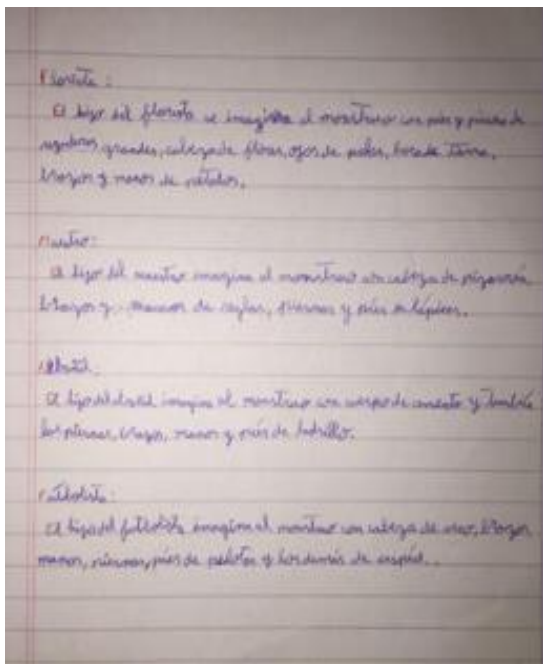 Florista:
El hijo del florista se imagina al monstruo con pies y piernas de
grandes, cabeza de flores, ojos de polen, boca de tierra,
brazos y manos de pétalos.
Maestro:
El hijo del maestro imagina al monstruo con cabeza de pizarrón
brazos y manos de reglas, piernas y pies de lápices.
Albañil.
El hijo del albañil imagina al monstruo con cuerpo de cemento y también
las piernas, brazos, manos y pies de ladrillo.
Futbolista:
El hijo del futbolista imagina al monstruo con cabeza de arco, brazos
manos, piernas, pies de pelotas y los demás de césped.